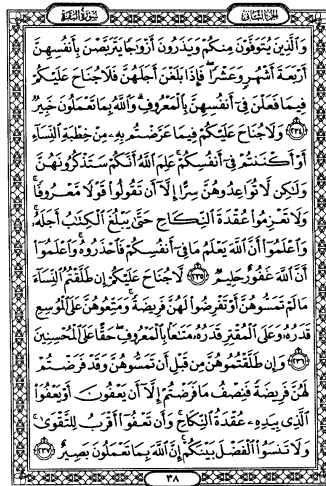 الجزء الثاني
سورة البقرة
وَالَّذِينَ يُتَوَفَّوْنَ مِنكُمْ وَيَذَرُونَ أَزْوَاجًا يَتَرَبَّصْنَ بِأَنفُسِهِنَّ
أَرْبَعَةَ أَشْهُرٍ وَعَشْرًا فَإِذَا بَلَغْنَ أَجَلَهُنَّ فَلَا جُنَاحَ عَلَيْكُمْ
فِيمَا فَعَلْنَ فِي أَنفُسِهِنَّ بِالْمَعْرُوفِ وَاللَّهُ بِمَا تَعْمَلُونَ خَبِيرٌ
﴿٢٣٤﴾ وَلَا جُنَاحَ عَلَيْكُمْ فِيمَا عَرَّضْتُم بِهِ مِنْ خِطْبَةِ النِّسَاءِ
أَوْ أَكْنَنتُمْ فِي أَنفُسِكُمْ عَلِمَ اللَّهُ أَنَّكُمْ سَتَذْكُرُونَهُنَّ
وَلَٰكِن لَّا تُوَاعِدُوهُنَّ سِرًّا إِلَّا أَن تَقُولُوا قَوْلًا مَّعْرُوفًا
وَلَا تَعْزِمُوا عُقْدَةَ النِّكَاحِ حَتَّىٰ يَبْلُغَ الْكِتَابُ أَجَلَهُ
وَاعْلَمُوا أَنَّ اللَّهَ يَعْلَمُ مَا فِي أَنفُسِكُمْ فَاحْذَرُوهُ وَاعْلَمُوا
أَنَّ اللَّهَ غَفُورٌ حَلِيمٌ ﴿٢٣٥﴾ لَّا جُنَاحَ عَلَيْكُمْ إِن طَلَّقْتُمُ النِّسَاءَ
مَا لَمْ تَمَسُّوهُنَّ أَوْ تَفْرِضُوا لَهُنَّ فَرِيضَةً وَمَتِّعُوهُنَّ عَلَى الْمُوسِعِ
قَدَرُهُ وَعَلَى الْمُقْتِرِ قَدَرُهُ مَتَاعًا بِالْمَعْرُوفِ حَقًّا عَلَى الْمُحْسِنِينَ
﴿٢٣٦﴾ وَإِن طَلَّقْتُمُوهُنَّ مِن قَبْلِ أَن تَمَسُّوهُنَّ وَقَدْ فَرَضْتُمْ
لَهُنَّ فَرِيضَةً فَنِصْفُ مَا فَرَضْتُمْ إِلَّا أَن يَعْفُونَ أَوْ يَعْفُوَا
الَّذِي بِيَدِهِ عُقْدَةُ النِّكَاحِ وَأَن تَعْفُوا أَقْرَبُ لِلتَّقْوَىٰ
وَلَا تَنسَوُا الْفَضْلَ بَيْنَكُمْ إِنَّ اللَّهَ بِمَا تَعْمَلُونَ بَصِيرٌ ﴿٢٣٧﴾
٣٨